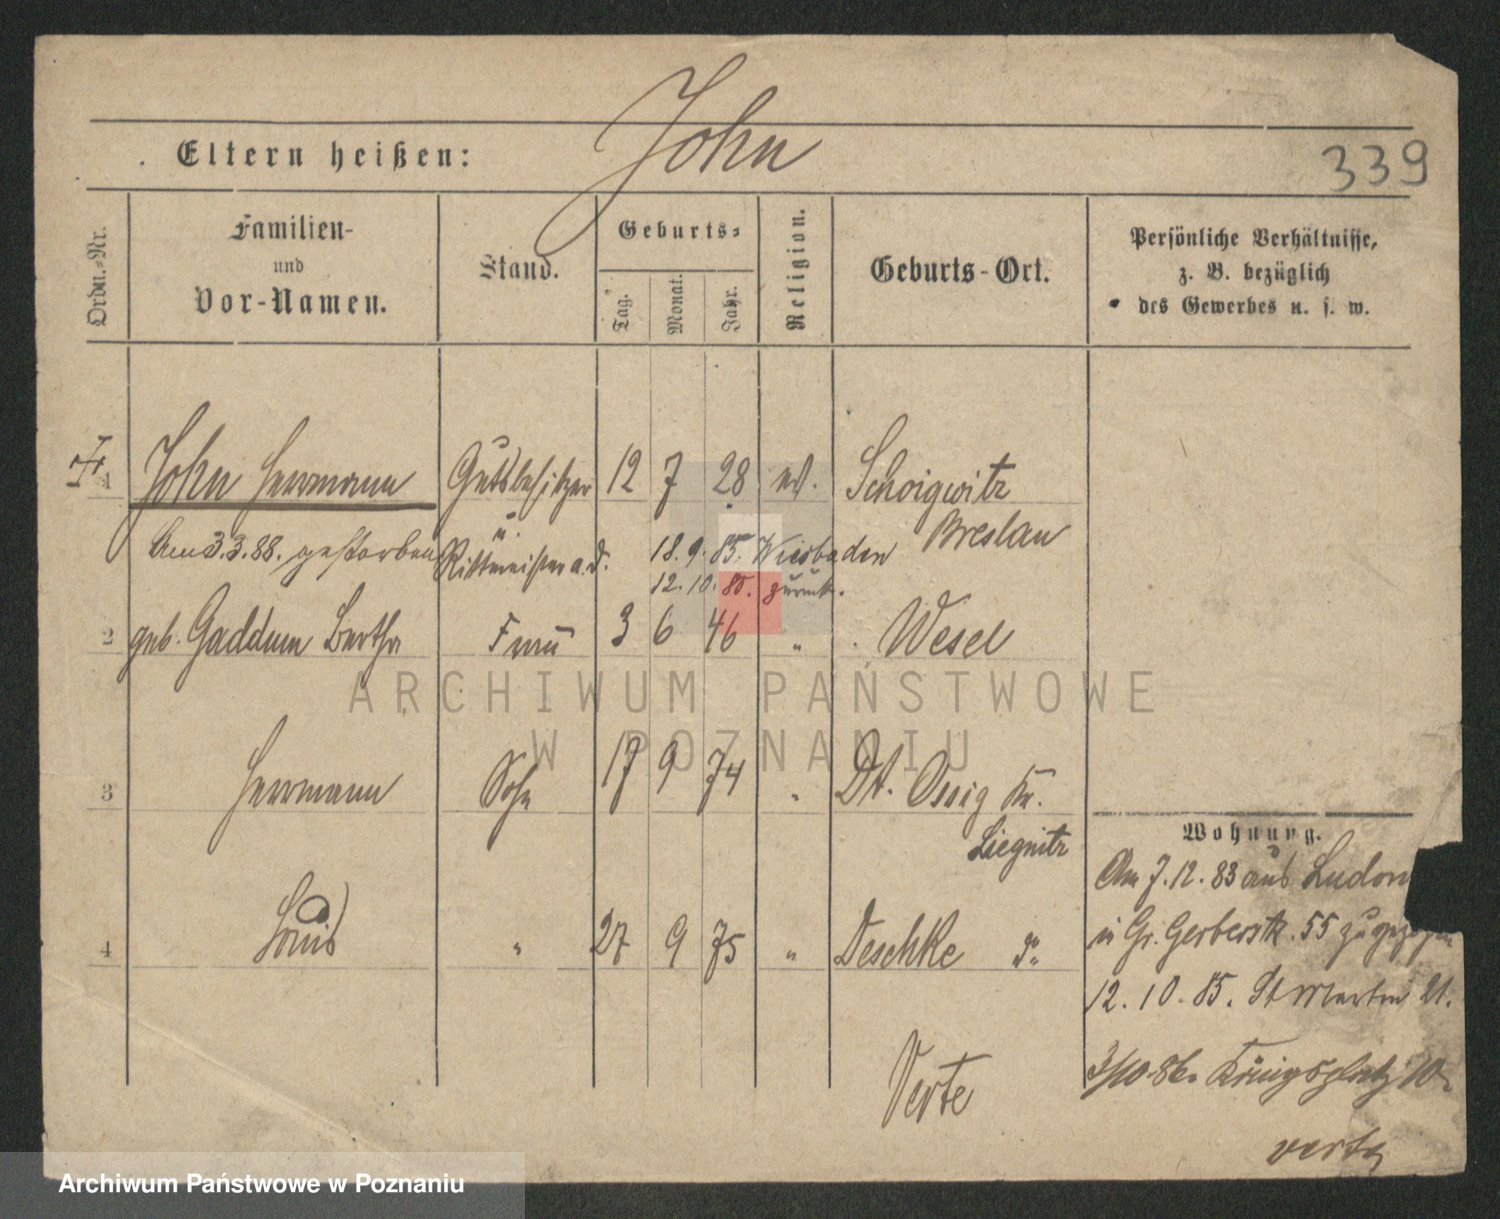 John
Eltern heißen:
339
Ordn.-Nr.
Familien-
und
Vor-Namen.
Stand.
Geburts-
Tag.
Monat.
Jahr.
Religion.
Geburts-Ort.
Persönliche Verhältnisse,
z. B. bezüglich
des Gewerbes u. s. w.
1 John Herrmann Gutsbesitzer 12 7 28 ev. Schoigwitz
u. Breslau
Am 3.3.88. gestorben Rittmeister a. d. 18. 9. 85. Wiesbaden
12. 10. 85. zurück.
2 geb. Gaddum Bertha Frau 3 6 46 " Wesel
ARCHIWUM PAŃSTWOWE
W POZNANIU
3 Herrmann Sohn 17 9 74 " Dt. Ossig Kr.
Liegnitz
Wohnung.
Am 7.12.83 aus Ludom
in Gr. Gerberstr. 55 zugezogen
4 Louis " 27 9 75 " Deschke do
12. 10. 85. St Martin 21.
3/10.86. Königsplatz 10.
Verte
verte
Archiwum Państwowe w Poznaniu